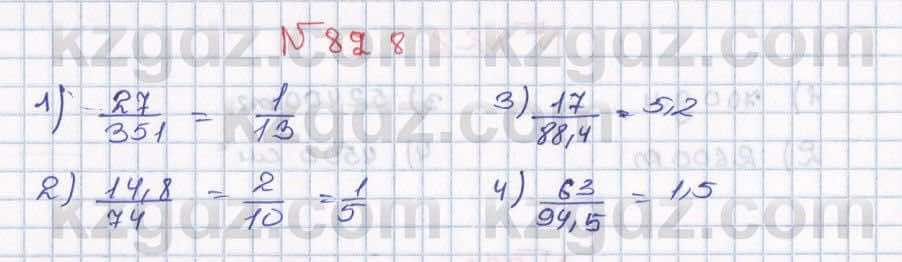 № 828
1) 27/351 = 1/13
2) 14,8/74 = 2/10 = 1/5
3) 17/88,4 = 5,2
4) 63/94,5 = 1,5
kzgdz.com kzgdz.com
kzgdz.com kzgdz.com
kzgdz.com kzgdz.com